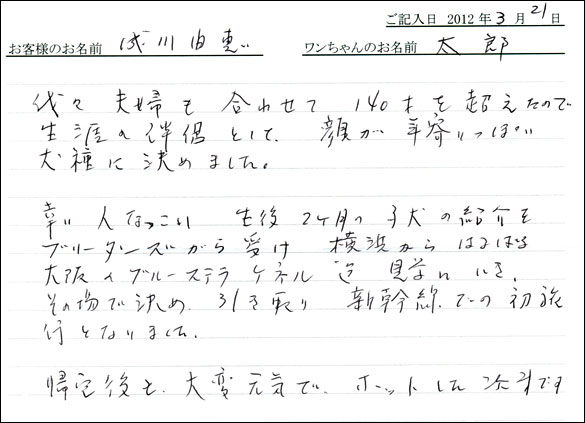 ご記入日 2012年3月21日
お客様のお名前 浅川由恵 ワンちゃんのお名前 太郎
我々夫婦も合わせて140才を超えたので
生涯の伴侶として、顔が年寄りっぽい
犬種に決めました。
幸い人なつこい生後2ヶ月の子犬の紹介を
ブリーダーズから受け横浜からはるばる
大阪のブルーステラケネル迄見学にいき、
その場で決め、引き取り新幹線での初旅
行となりました。
帰宅後も、大変元気で、ホットした次第です